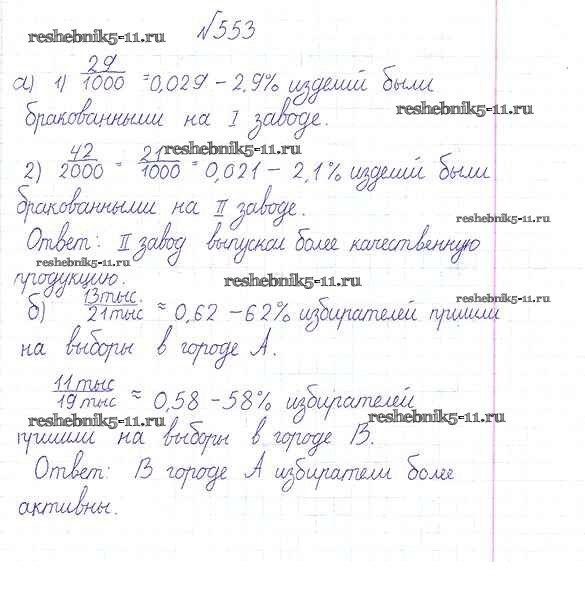 №553
reshebnik5-11.ru
а) 1) 29/1000 = 0,029 – 2,9% изделий были
reshebnik5-11.ru
бракованными на I заводе.
reshebnik5-11.ru
2) 42/2000 = 21/1000 = 0,021 – 2,1% изделий были
бракованными на II заводе.
reshebnik5-11.ru
Ответ: II завод выпускал более качественную
reshebnik5-11.ru
продукцию.
reshebnik5-11.ru
reshebnik5-11.ru
б) 13тыс./21тыс ≈ 0,62 – 62% избирателей пришли
на выборы в городе А.
11тыс/19тыс ≈ 0,58 – 58% избирателей
reshebnik5-11.ru
reshebnik5-11.ru
пришли на выборы в городе В.
Ответ: В городе А избиратели более
активны.